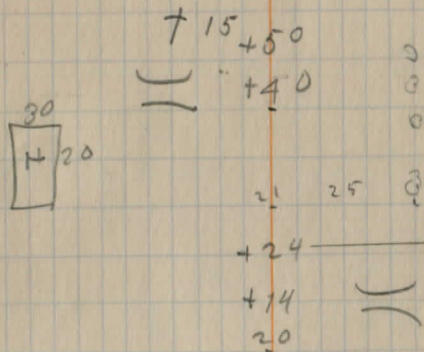 + 15
+50
+40
30
20
21 25
+24
+14
20